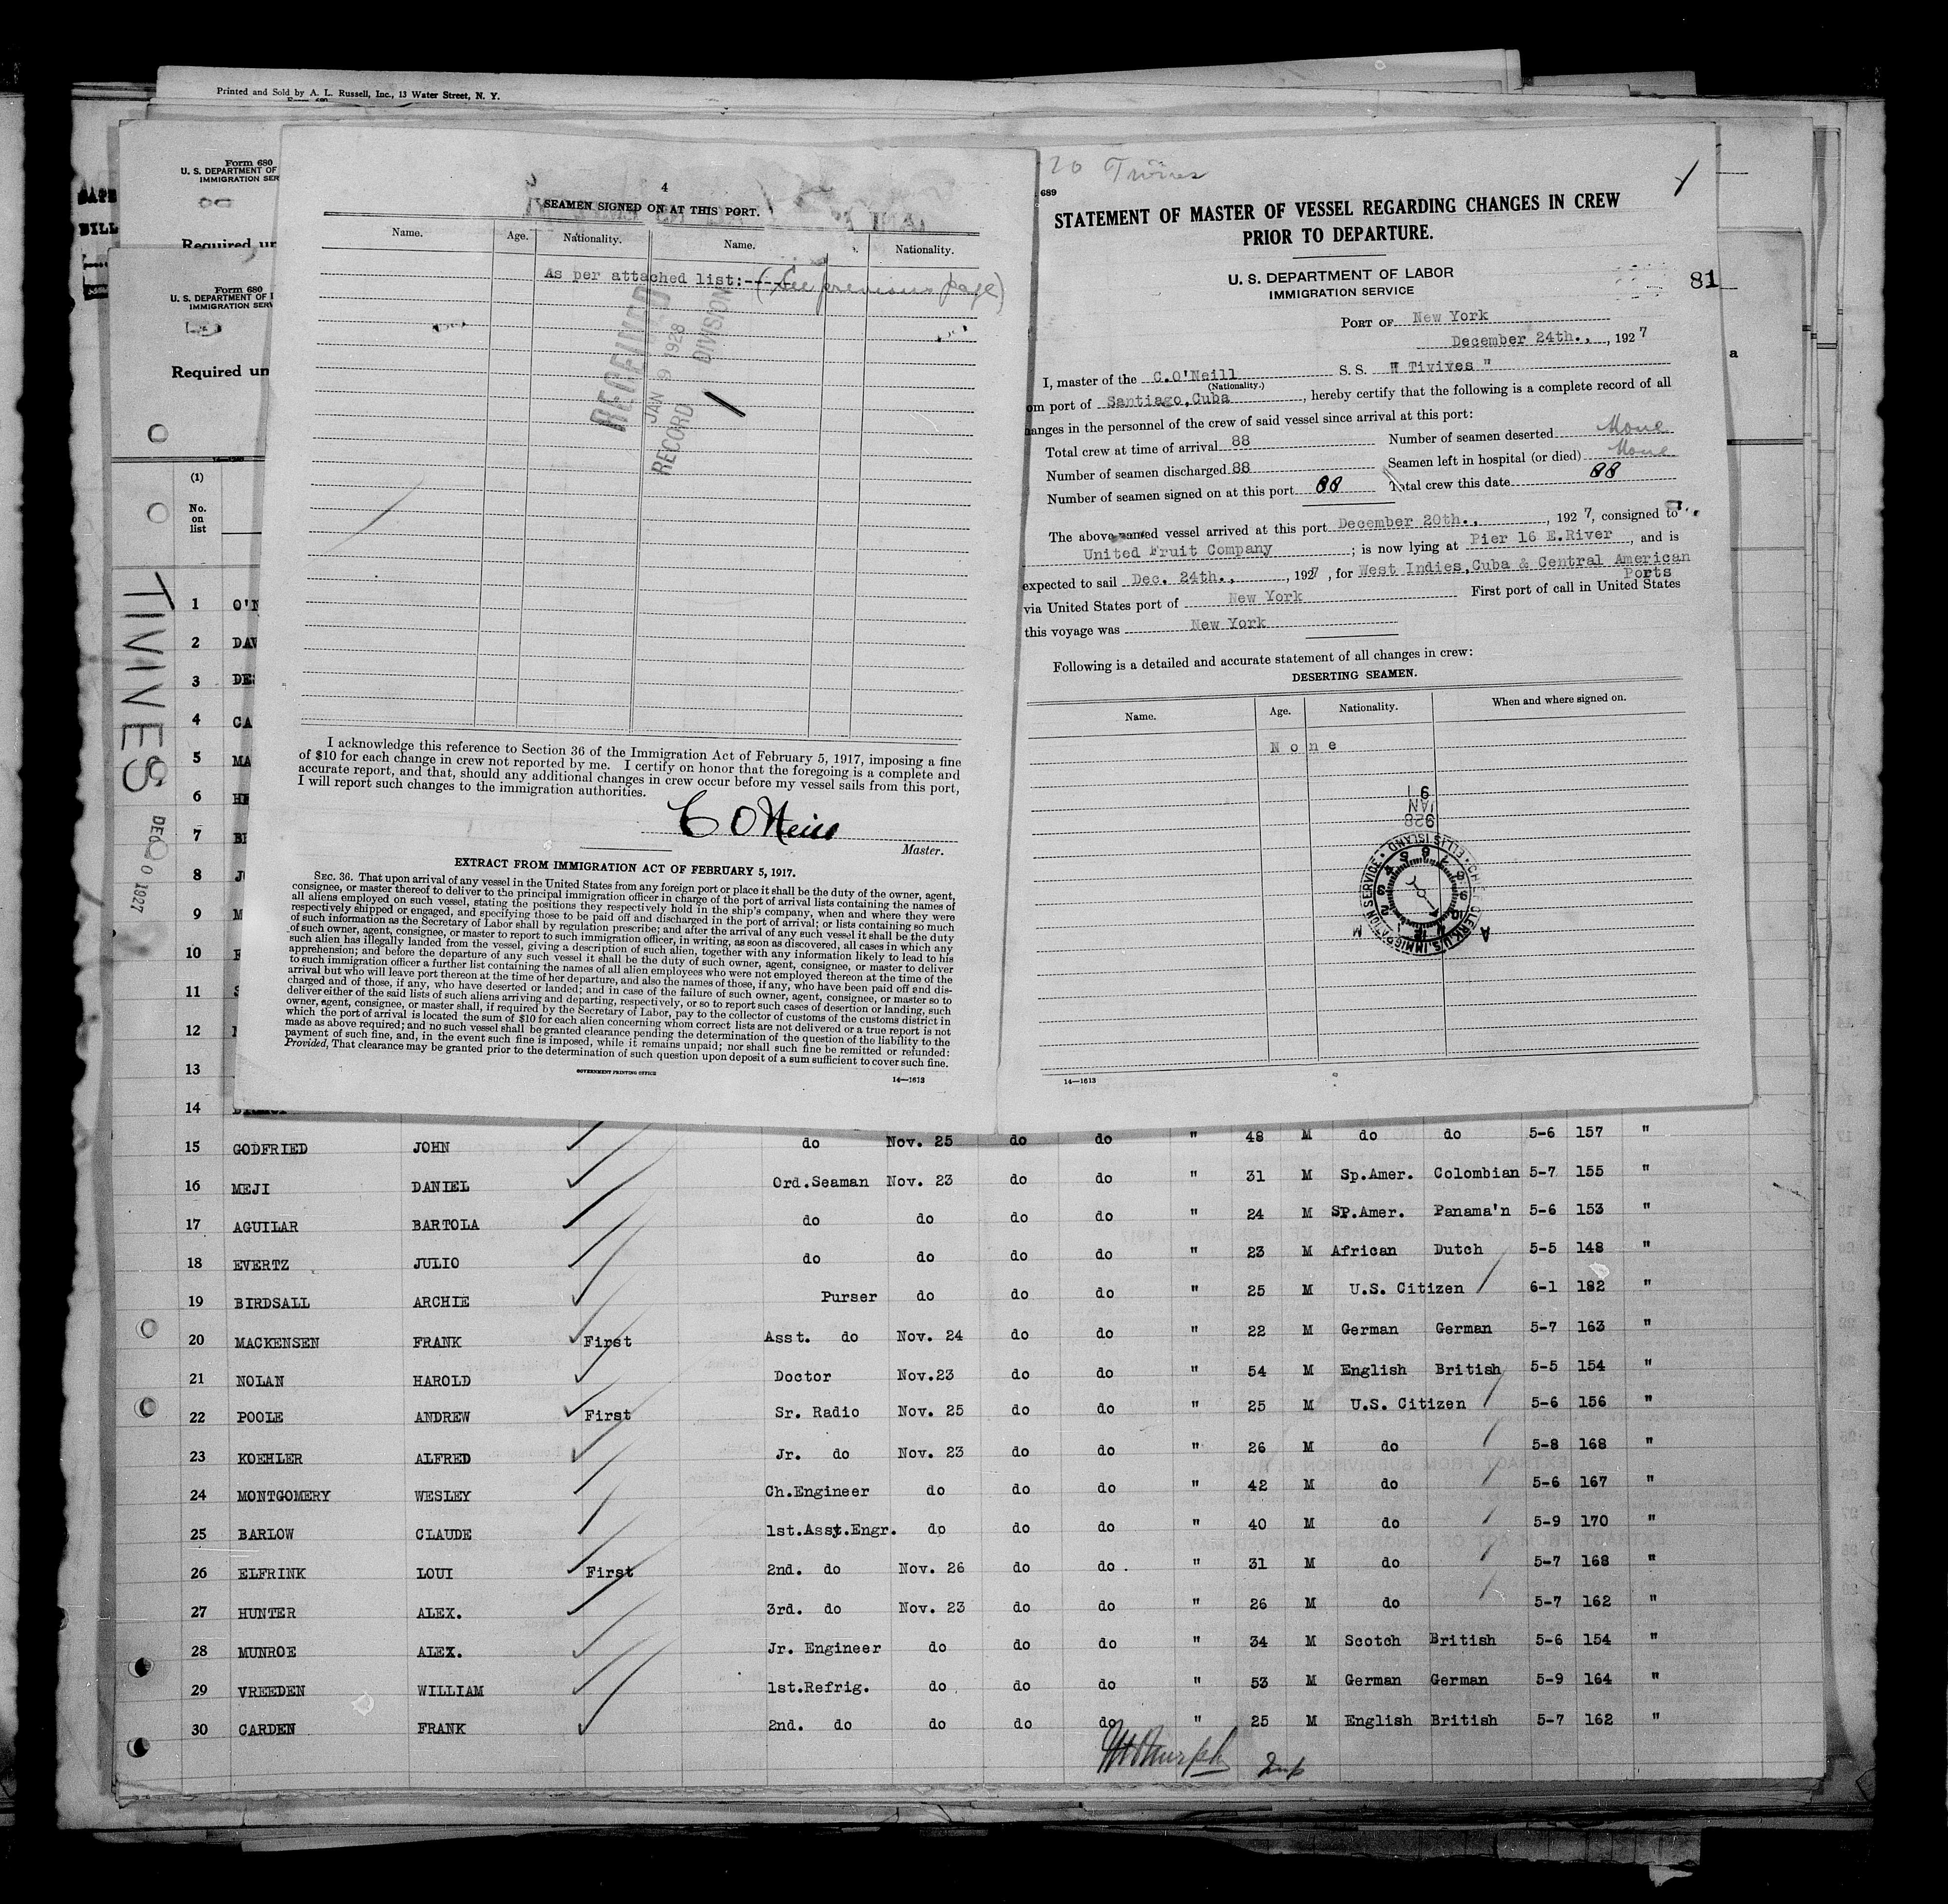 Printed and Sold by A. L. Russell, Inc., 13 Water Street, N. Y.
Form 680
U. S. DEPARTMENT OF
IMMIGRATION SER
Required un
Form 680
U. S. DEPARTMENT OF
IMMIGRATION SERV
Required un
(1)
No.
on
list
TIVIVES
DEC 20 1927
4
SEAMEN SIGNED ON AT THIS PORT.
Name. Age. Nationality. Name. Nationality.
As per attached list:----(See previous page)
RECEIVED
JAN 9 1928
RECORD DIVISION
I acknowledge this reference to Section 36 of the Immigration Act of February 5, 1917, imposing a fine
of $10 for each change in crew not reported by me. I certify on honor that the foregoing is a complete and
accurate report, and that, should any additional changes in crew occur before my vessel sails from this port,
I will report such changes to the immigration authorities.
C O'Neill
Master.
EXTRACT FROM IMMIGRATION ACT OF FEBRUARY 5, 1917.
SEC. 36. That upon arrival of any vessel in the United States from any foreign port or place it shall be the duty of the owner, agent,
consignee, or master thereof to deliver to the principal immigration officer in charge of the port of arrival lists containing the names of
all aliens employed on such vessel, stating the positions they respectively hold in the ship's company, when and where they were
respectively shipped or engaged, and specifying those to be paid off and discharged in the port of arrival; or lists containing so much
of such information as the Secretary of Labor shall by regulation prescribe; and after the arrival of any such vessel it shall be the duty
of such owner, agent, consignee, or master to report to such immigration officer, in writing, as soon as discovered, all cases in which any
such alien has illegally landed from the vessel, giving a description of such alien, together with any information likely to lead to his
apprehension; and before the departure of any such vessel it shall be the duty of such owner, agent, consignee, or master to deliver
to such immigration officer a further list containing the names of all alien employees who were not employed thereon at the time of the
arrival but who will leave port thereon at the time of her departure, and also the names of those, if any, who have been paid off and dis-
charged and of those, if any, who have deserted or landed; and in case of the failure of such owner, agent, consignee, or master so to
deliver either of the said lists of such aliens arriving and departing, respectively, or so to report such cases of desertion or landing, such
owner, agent, consignee, or master shall, if required by the Secretary of Labor, pay to the collector of customs of the customs district in
which the port of arrival is located the sum of $10 for each alien concerning whom correct lists are not delivered or a true report is not
made as above required; and no such vessel shall be granted clearance pending the determination of the question of the liability to the
payment of such fine, and, in the event such fine is imposed, while it remains unpaid; nor shall such fine be remitted or refunded:
Provided, That clearance may be granted prior to the determination of such question upon deposit of a sum sufficient to cover such fine.
GOVERNMENT PRINTING OFFICE 14—1613
689
STATEMENT OF MASTER OF VESSEL REGARDING CHANGES IN CREW
PRIOR TO DEPARTURE.
U. S. DEPARTMENT OF LABOR
IMMIGRATION SERVICE
81
PORT OF New York
December 24th., , 1927
I, master of the C.O'Neill S. S. " Tivives "
(Nationality.)
om port of Santiago,Cuba , hereby certify that the following is a complete record of all
anges in the personnel of the crew of said vessel since arrival at this port:
Total crew at time of arrival 88 Number of seamen deserted None
Number of seamen discharged 88 Seamen left in hospital (or died) None
Number of seamen signed on at this port 88 Total crew this date 88
The above-named vessel arrived at this port December 20th., , 1927, consigned to
United Fruit Company ; is now lying at Pier 16 E.River , and is
expected to sail Dec. 24th., , 1927 , for West Indies,Cuba & Central American
Ports
via United States port of New York First port of call in United States
this voyage was New York
Following is a detailed and accurate statement of all changes in crew:
DESERTING SEAMEN.
Name. Age. Nationality. When and where signed on.
None
JAN 9 1928
CHIEF CLERK, U.S. IMMIGRATION SERVICE • ELLIS ISLAND •
14—1613
1 O'N
2 DAV
3 DE
4 CA
5 MA
6 HE
7
8 J
9 M
10
11 S
12
13
14
15 GODFRIED JOHN do Nov. 25 do do " 48 M do do 5-6 157 "
16 MEJI DANIEL Ord.Seaman Nov. 23 do do " 31 M Sp.Amer. Colombian 5-7 155 "
17 AGUILAR BARTOLA do do do do " 24 M SP.Amer. Panama'n 5-6 153 "
18 EVERTZ JULIO do do do do " 23 M African Dutch 5-5 148 "
19 BIRDSALL ARCHIE Purser do do do " 25 M U.S. Citizen 6-1 182 "
20 MACKENSEN FRANK First Asst. do Nov. 24 do do " 22 M German German 5-7 163 "
21 NOLAN HAROLD Doctor Nov.23 do do " 54 M English British 5-5 154 "
22 POOLE ANDREW First Sr. Radio Nov. 25 do do " 25 M U.S. Citizen 5-6 156 "
23 KOEHLER ALFRED Jr. do Nov. 23 do do " 26 M do 5-8 168 "
24 MONTGOMERY WESLEY Ch.Engineer do do do " 42 M do 5-6 167 "
25 BARLOW CLAUDE 1st.Asst.Engr. do do do " 40 M do 5-9 170 "
26 ELFRINK LOUI First 2nd. do Nov. 26 do do " 31 M do 5-7 168 "
27 HUNTER ALEX. 3rd. do Nov. 23 do do " 26 M do 5-7 162 "
28 MUNROE ALEX. Jr. Engineer do do do " 34 M Scotch British 5-6 154 "
29 VREEDEN WILLIAM 1st.Refrig. do do do " 53 M German German 5-9 164 "
30 CARDEN FRANK 2nd. do do do do " 25 M English British 5-7 162 "